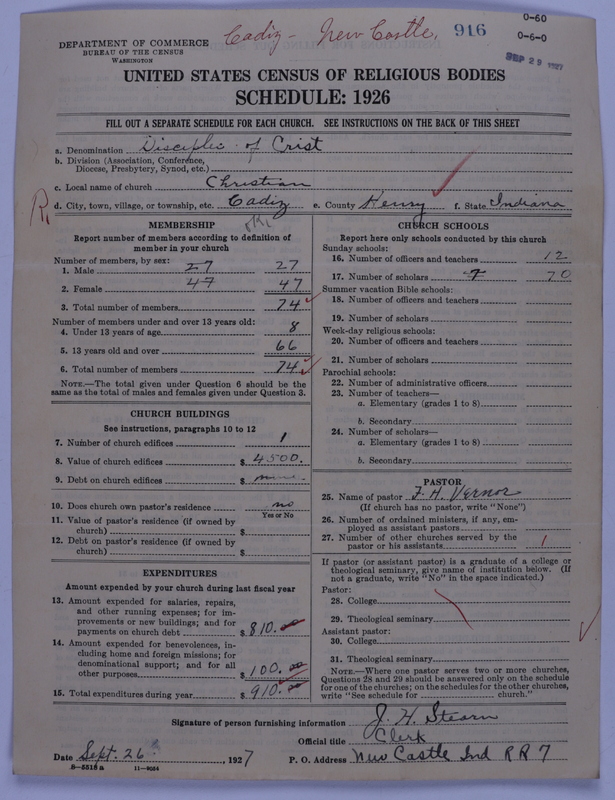 Cadiz - New Castle, 916
0-60
0-6-0
SEP 29 1927
DEPARTMENT OF COMMERCE
BUREAU OF THE CENSUS
WASHINGTON
UNITED STATES CENSUS OF RELIGIOUS BODIES
SCHEDULE: 1926
FILL OUT A SEPARATE SCHEDULE FOR EACH CHURCH. SEE INSTRUCTIONS ON THE BACK OF THIS SHEET
a. Denomination Disciples of Crist
b. Division (Association, Conference,
Diocese, Presbytery, Synod, etc.)
c. Local name of church Christian
d. City, town, village, or township, etc. Cadiz e. County Henry f. State Indiana
MEMBERSHIP
Report number of members according to definition of
member in your church
Number of members, by sex:
1. Male 27 27
2. Female 47 47
3. Total number of members 74
Number of members under and over 13 years old:
4. Under 13 years of age 8
5. 13 years old and over 66
6. Total number of members 74
NOTE.—The total given under Question 6 should be the
same as the total of males and females given under Question 3.
CHURCH BUILDINGS
See instructions, paragraphs 10 to 12
7. Number of church edifices 1
8. Value of church edifices $ 4500.
9. Debt on church edifices $ none
10. Does church own pastor's residence no
Yes or No
11. Value of pastor's residence (if owned by
church) $
12. Debt on pastor's residence (if owned by
church) $
EXPENDITURES
Amount expended by your church during last fiscal year
13. Amount expended for salaries, repairs,
and other running expenses; for im-
provements or new buildings; and for
payments on church debt $ 810.00
14. Amount expended for benevolences, in-
cluding home and foreign missions; for
denominational support; and for all
other purposes $ 100.00
15. Total expenditures during year $ 910.00
CHURCH SCHOOLS
Report here only schools conducted by this church
Sunday schools:
16. Number of officers and teachers 12
17. Number of scholars 7 70
Summer vacation Bible schools:
18. Number of officers and teachers
19. Number of scholars
Week-day religious schools:
20. Number of officers and teachers
21. Number of scholars
Parochial schools:
22. Number of administrative officers
23. Number of teachers—
a. Elementary (grades 1 to 8)
b. Secondary
24. Number of scholars—
a. Elementary (grades 1 to 8)
b. Secondary
PASTOR
25. Name of pastor F. H. Vernor
(If church has no pastor, write "None")
26. Number of ordained ministers, if any, em-
ployed as assistant pastors
27. Number of other churches served by the
pastor or his assistants 1
If pastor (or assistant pastor) is a graduate of a college or
theological seminary, give name of institution below. (If
not a graduate, write "No" in the space indicated.)
Pastor:
28. College
29. Theological seminary
Assistant pastor:
30. College
31. Theological seminary
NOTE.—Where one pastor serves two or more churches,
Questions 28 and 29 should be answered only on the schedule
for one of the churches; on the schedules for the other churches,
write "See schedule for church."
Signature of person furnishing information J. H. Stearn
Official title Clerk
Date Sept. 26, 1927 P. O. Address New Castle Ind RR 7
8-5518 a 11-9034